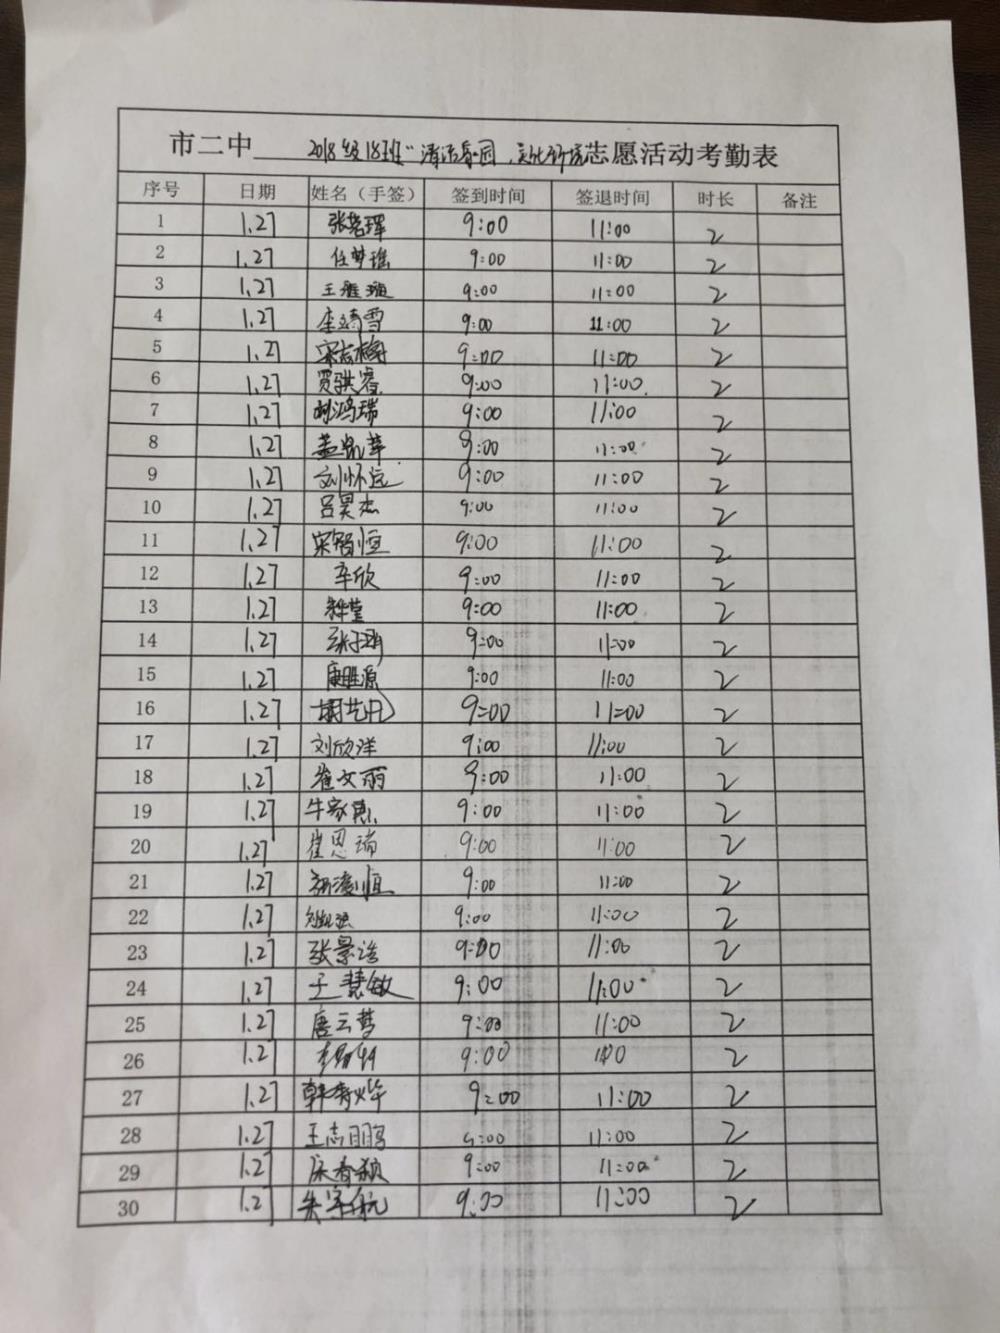 市二中 2018级18班"清洁家园,志愿活动考勤表
序号 日期 姓名（手签） 签到时间 签退时间 时长 备注
1 1.27 9:00 11:00 2
2 1.27 任梦瑶 9:00 11:00 2
3 1.27 王雅璇 9:00 11:00 2
4 1.27 李靖雪 9:00 11:00 2
5 1.27 宋志梅 9:00 11:00 2
6 1.27 贾骐睿 9:00 11:00 2
7 1.27 鸿瑞 9:00 11:00 2
8 1.27 孟凯 9:00 11:00 2
9 1.27 刘怀远 9:00 11:00 2
10 1.27 吕昊杰 9:00 11:00 2
11 1.27 宋智恒 9:00 11:00 2
12 1.27 辛欣 9:00 11:00 2
13 1.27 9:00 11:00 2
14 1.27 张子 9:00 11:00 2
15 1.27 康胜源 9:00 11:00 2
16 1.27 胡艺凡 9:00 11:00 2
17 1.27 刘欣洋 9:00 11:00 2
18 1.27 崔文丽 9:00 11:00 2
19 1.27 牛家惠 9:00 11:00 2
20 1.27 崔恩瑞 9:00 11:00 2
21 1.27 恒 9:00 11:00 2
22 1.27 9:00 11:00 2
23 1.27 张景浩 9:00 11:00 2
24 1.27 王慧敏 9:00 11:00 2
25 1.27 唐云梦 9:00 11:00 2
26 1.27 李 9:00 2
27 1.27 韩秀烨 9:00 11:00 2
28 1.27 王志鹏 9:00 11:00 2
29 1.27 9:00 11:00 2
30 1.27 朱宇航 9:00 11:00 2